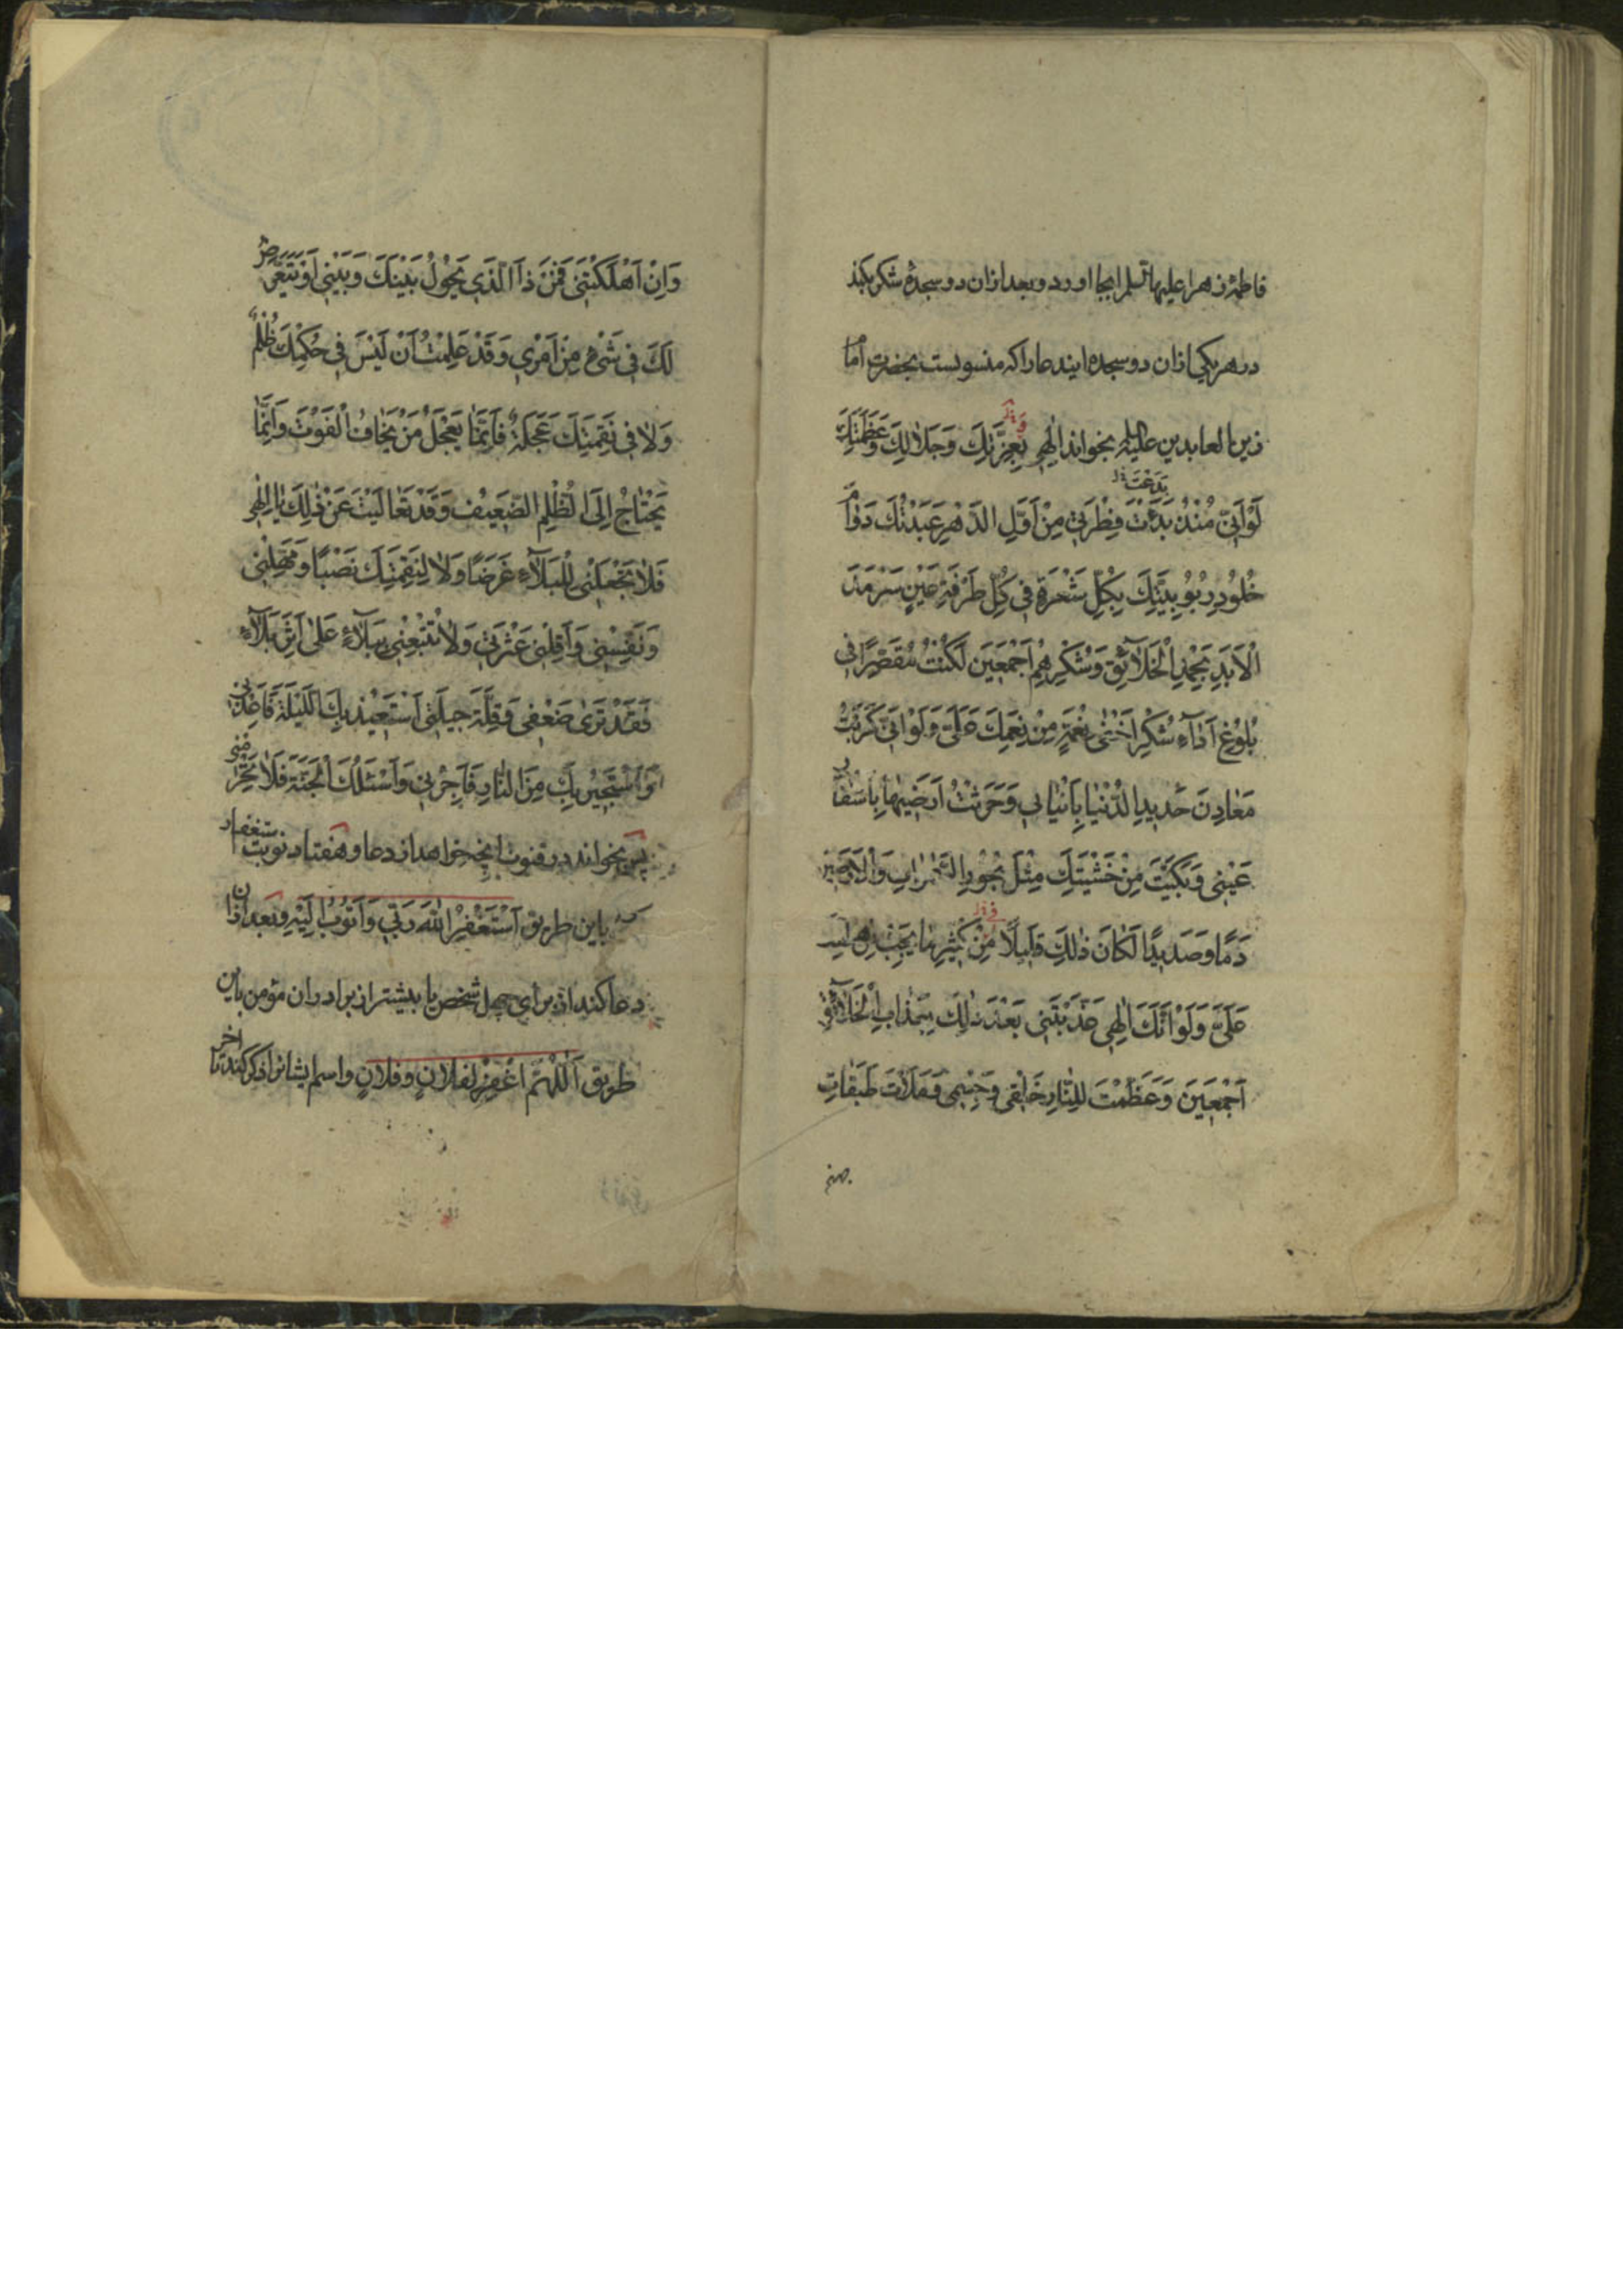 فاطمهٔ زهرا علیها السلم را بجا اورد و بعد ازان دو سجدهٔ شکر بکند
در هر یکی ازان دو سجده ایندعا را که منسوبست بحضرت امام
زین العابدین علیه بخواند اِلٰهِی بِعِزَّتِكَ وَجَلَالِكَ وَعَظَمَتِكَ
بَدَعْتَ
لَوْ اَنِّي مُنْذُ بَدَئْتَ فِطْرَتِي مِنْ اَوَّلِ الدَّهْرِ عَبَدْتُكَ دَوَامَ
خُلُودِ رُبُوبِيَّتِكَ بِكُلِّ شَعْرَةٍ فِي كُلِّ طَرْفَةِ عَيْنٍ سَرْمَدَ
الْاَبَدِ بِحَمْدِ الْخَلَآئِقِ وَشُكْرِهِمْ اَجْمَعِينَ لَكُنْتُ مُقَصِّرًا فِي
بُلُوغِ اَدَآءِ شُكْرِ اَخْفٰى نِعْمَةٍ مِنْ نِعَمِكَ عَلَيَّ وَلَوْ اَنِّي كَرَبْتُ
مَعَادِنَ حَدِيدِ الدُّنْيَا بِاَنْيَابِي وَحَرَثْتُ اَرَضِيهَا بِاَشْفَارِ
عَيْنِي وَبَكَيْتُ مِنْ خَشْيَتِكَ مِثْلَ بُحُورِ السَّمٰوَاتِ وَالْاَرَضِينَ
دَمًا وَصَدِيدًا لَكَانَ ذٰلِكَ قَلِيلًا مِنْ كَثِيرِ مَا يَجِبُ مِنْ
عَلَيَّ وَلَوْ اَنَّكَ اِلٰهِي عَذَّبْتَنِي بَعْدَ ذٰلِكَ بِعَذَابِ الْخَلَآئِقِ
اَجْمَعِينَ وَعَظَّمْتَ لِلنَّارِ خَلْقِي وَجِسْمِي وَمَلَأْتَ طَبَقَاتِ
وَاِنْ اَهْلَكْتَنِي فَمَنْ ذَا الَّذِي يَحُولُ بَيْنَكَ وَبَيْنِي اَوْ يَتَعَرَّضُ
لَكَ فِي شَيْءٍ مِنْ اَمْرِي وَقَدْ عَلِمْتُ اَنْ لَيْسَ فِي حُكْمِكَ ظُلْمٌ
وَلَا فِي نَقِمَتِكَ عَجَلَةٌ فَاِنَّمَا يَعْجَلُ مَنْ يَخَافُ الْفَوْتَ وَاِنَّمَا
يَحْتَاجُ اِلَى الظُّلْمِ الضَّعِيفُ وَقَدْ تَعَالَيْتَ عَنْ ذٰلِكَ يَا اِلٰهِي
فَلَا تَجْعَلْنِي لِلْبَلَآءِ غَرَضًا وَلَا لِنَقِمَتِكَ نَصَبًا وَمَهِّلْنِي
وَنَفِّسْنِي وَاَقِلْنِي عَثْرَتِي وَلَا تُتْبِعْنِي بِبَلَآءٍ عَلٰى اَثَرِ بَلَآءٍ
فَقَدْ تَرٰى ضَعْفِي وَقِلَّةَ حِيلَتِي اَسْتَعِيذُ بِكَ اللَّيْلَةَ فَاَعِذْنِي
وَاَسْتَجِيرُ بِكَ مِنَ النَّارِ فَاَجِرْنِي وَاَسْئَلُكَ الْجَنَّةَ فَلَا تَحْرِمْنِي
پس بخواند در قنوت انچه خواهد از دعا و هفتاد نوبت استغفار
باین طریق اَسْتَغْفِرُ اللّٰهَ رَبِّي وَاَتُوبُ اِلَيْهِ و بعد ازان
دعا کند از برای چهل شخص یا بیشتر از برادران مؤمن باین
طریق اَللّٰهُمَّ اغْفِرْ لِفُلَانٍ وَفُلَانٍ و اسم ایشانرا ذکر کند تا اخر